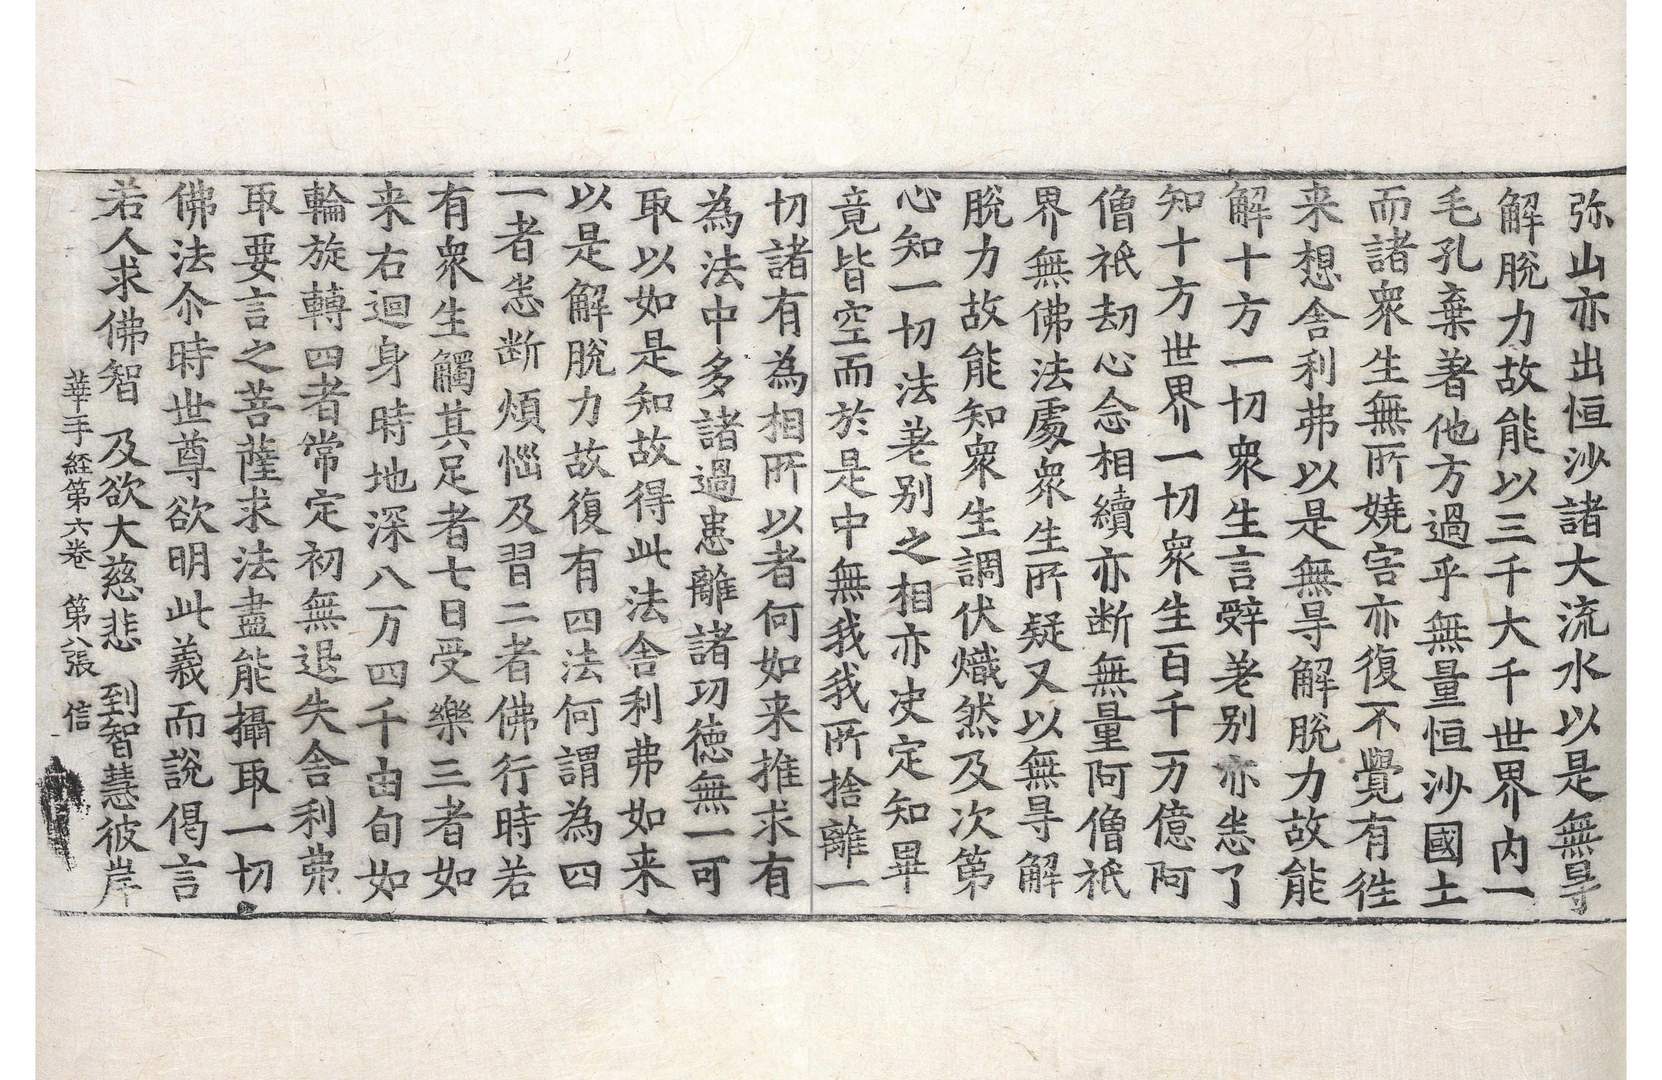 弥山亦出恒沙諸大流水以是無㝵
解脫力故能以三千大千世界內一
毛孔棄著他方過乎無量恒沙國土
而諸衆生無所嬈害亦復不覺有徃
来想舎利弗以是無㝵解脫力故能
解十方一切衆生言辤差别亦悉了
知十方世界一切衆生百千万億阿
僧祇劫心念相續亦断無量阿僧祇
界無佛法處衆生所疑又以無㝵解
脫力故能知衆生調伏熾然及次第
心知一切法差别之相亦决定知畢
竟皆空而於是中無我我所捨離一
切諸有為相所以者何如来推求有
為法中多諸過患離諸功徳無一可
取以如是知故得此法舎利弗如来
以是解脫力故復有四法何謂為四
一者悉断煩惱及習二者佛行時若
有衆生觸其足者七日受樂三者如
来右迴身時地深八万四千由旬如
輪旋轉四者常定初無退失舎利弗
取要言之菩薩求法盡能攝取一切
佛法尒時世尊欲明此義而說偈言
若人求佛智 及欲大慈悲 到智慧彼岸
華手経第六卷 第八張 信